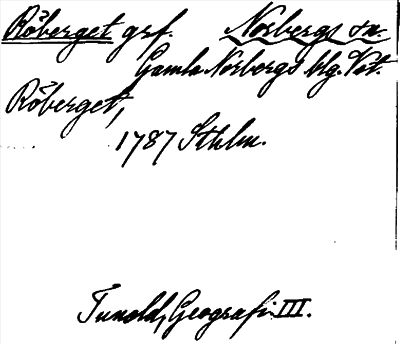 Röberget grf. Norbergs sn.
Gamla Norbergs blg. Vstm.
Röberget,
1787 Sthlm.
Tunold, Geografi III.